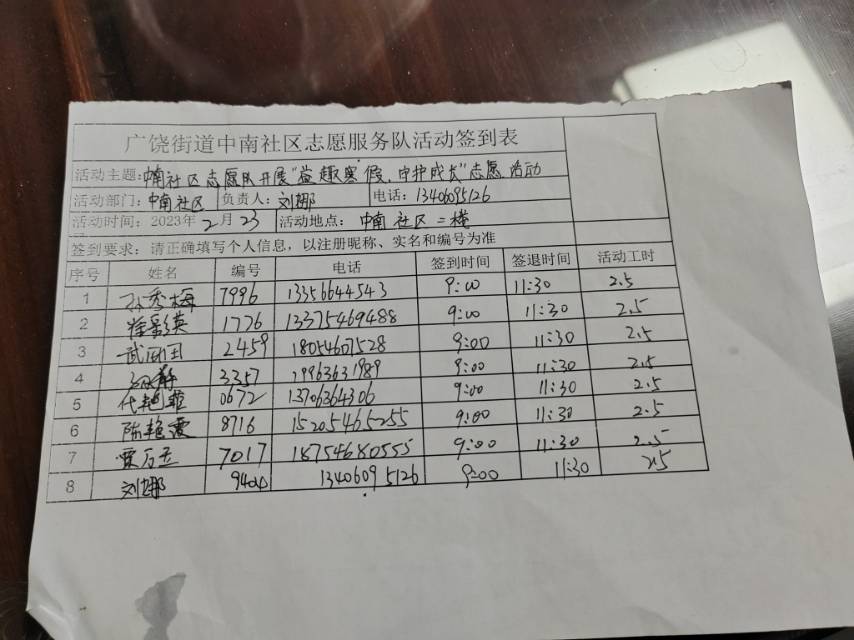 广饶街道中南社区志愿服务队活动签到表
活动主题：中南社区志愿队开展"益趣寒假、守护成长"志愿活动
活动部门：中南社区 负责人：刘娜 电话：13406095126
活动时间：2023年2月23 活动地点：中南社区二楼
签到要求：请正确填写个人信息，以注册昵称、实名和编号为准
序号 姓名 编号 电话 签到时间 签退时间 活动工时
1 孙秀梅 7996 13356644543 9:00 11:30 2.5
2 1776 13375469488 9:00 11:30 2.5
3 2459 18054607528 9:00 11:30 2.5
4 3357 19963631989 9:00 11:30 2.5
5 代艳菲 0672 13706364306 9:00 11:30 2.5
6 陈艳霞 8716 15205465255 9:00 11:30 2.5
7 7017 18754680555 9:00 11:30 2.5
8 刘娜 9404 13406095126 9:00 11:30 2.5